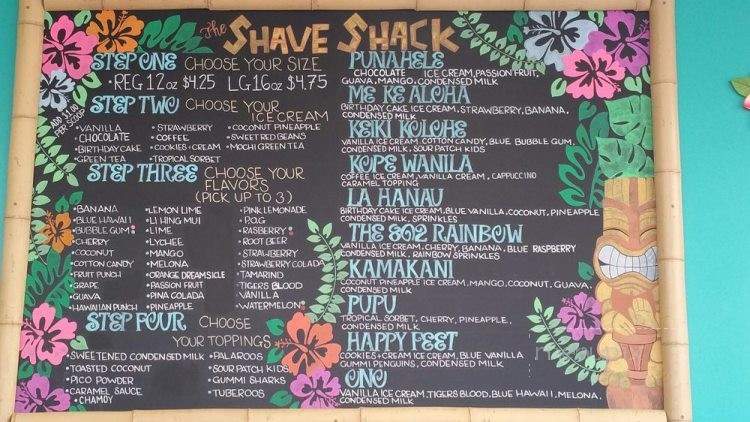 The SHAVE SHACK
STEP ONE CHOOSE YOUR SIZE
• REG 12oz $4.25 LG 16oz $4.75
STEP TWO CHOOSE YOUR
ICE CREAM
ADD $1.00
PER SCOOP
• VANILLA
• CHOCOLATE
• BIRTHDAY CAKE
• GREEN TEA
• STRAWBERRY
• COFFEE
• COOKIES + CREAM
• TROPICAL SORBET
• COCONUT PINEAPPLE
• SWEET RED BEANS
• MOCHI GREEN TEA
STEP THREE CHOOSE YOUR
FLAVORS
(PICK UP TO 3)
• BANANA
• BLUE HAWAII
• BUBBLE GUM
• CHERRY
• COCONUT
• COTTON CANDY
• FRUIT PUNCH
• GRAPE
• GUAVA
• HAWAIIAN PUNCH
• LEMON LIME
• LI HING MUI
• LIME
• LYCHEE
• MANGO
• MELONA
• ORANGE DREAMSICLE
• PASSION FRUIT
• PINA COLADA
• PINEAPPLE
• PINK LEMONADE
• P.O.G
• RASBERRY
• ROOT BEER
• STRAWBERRY
• STRAWBERRY COLADA
• TAMARIND
• TIGERS BLOOD
• VANILLA
• WATERMELON
STEP FOUR CHOOSE
YOUR TOPPINGS
• SWEETENED CONDENSED MILK
• TOASTED COCONUT
• PICO POWDER
• CARAMEL SAUCE
• CHAMOY
• PALAROOS
• SOUR PATCH KIDS
• GUMMI SHARKS
• TUBEROOS
PUNAHELE
CHOCOLATE ICE CREAM, PASSION FRUIT,
GUAVA, MANGO, CONDENSED MILK
ME KE ALOHA
BIRTHDAY CAKE ICE CREAM, STRAWBERRY, BANANA,
CONDENSED MILK
KEIKI KOLOHE
VANILLA ICE CREAM, COTTON CANDY, BLUE BUBBLE GUM,
CONDENSED MILK, SOUR PATCH KIDS
KOPE WANILA
COFFEE ICE CREAM, VANILLA CREAM, CAPPUCCINO
CARAMEL TOPPING
LA HANAU
BIRTHDAY CAKE ICE CREAM, BLUE VANILLA, COCONUT, PINEAPPLE
CONDENSED MILK, SPRINKLES
THE 808 RAINBOW
VANILLA ICE CREAM, CHERRY, BANANA, BLUE RASPBERRY
CONDENSED MILK, RAINBOW SPRINKLES
KAMAKANI
COCONUT PINEAPPLE ICE CREAM, MANGO, COCONUT, GUAVA,
CONDENSED MILK
PUPU
TROPICAL SORBET, CHERRY, PINEAPPLE,
CONDENSED MILK
HAPPY FEET
COOKIES + CREAM ICE CREAM, BLUE VANILLA
GUMMI PENGUINS, CONDENSED MILK
ONO
VANILLA ICE CREAM, TIGERS BLOOD, BLUE HAWAII, MELONA,
CONDENSED MILK